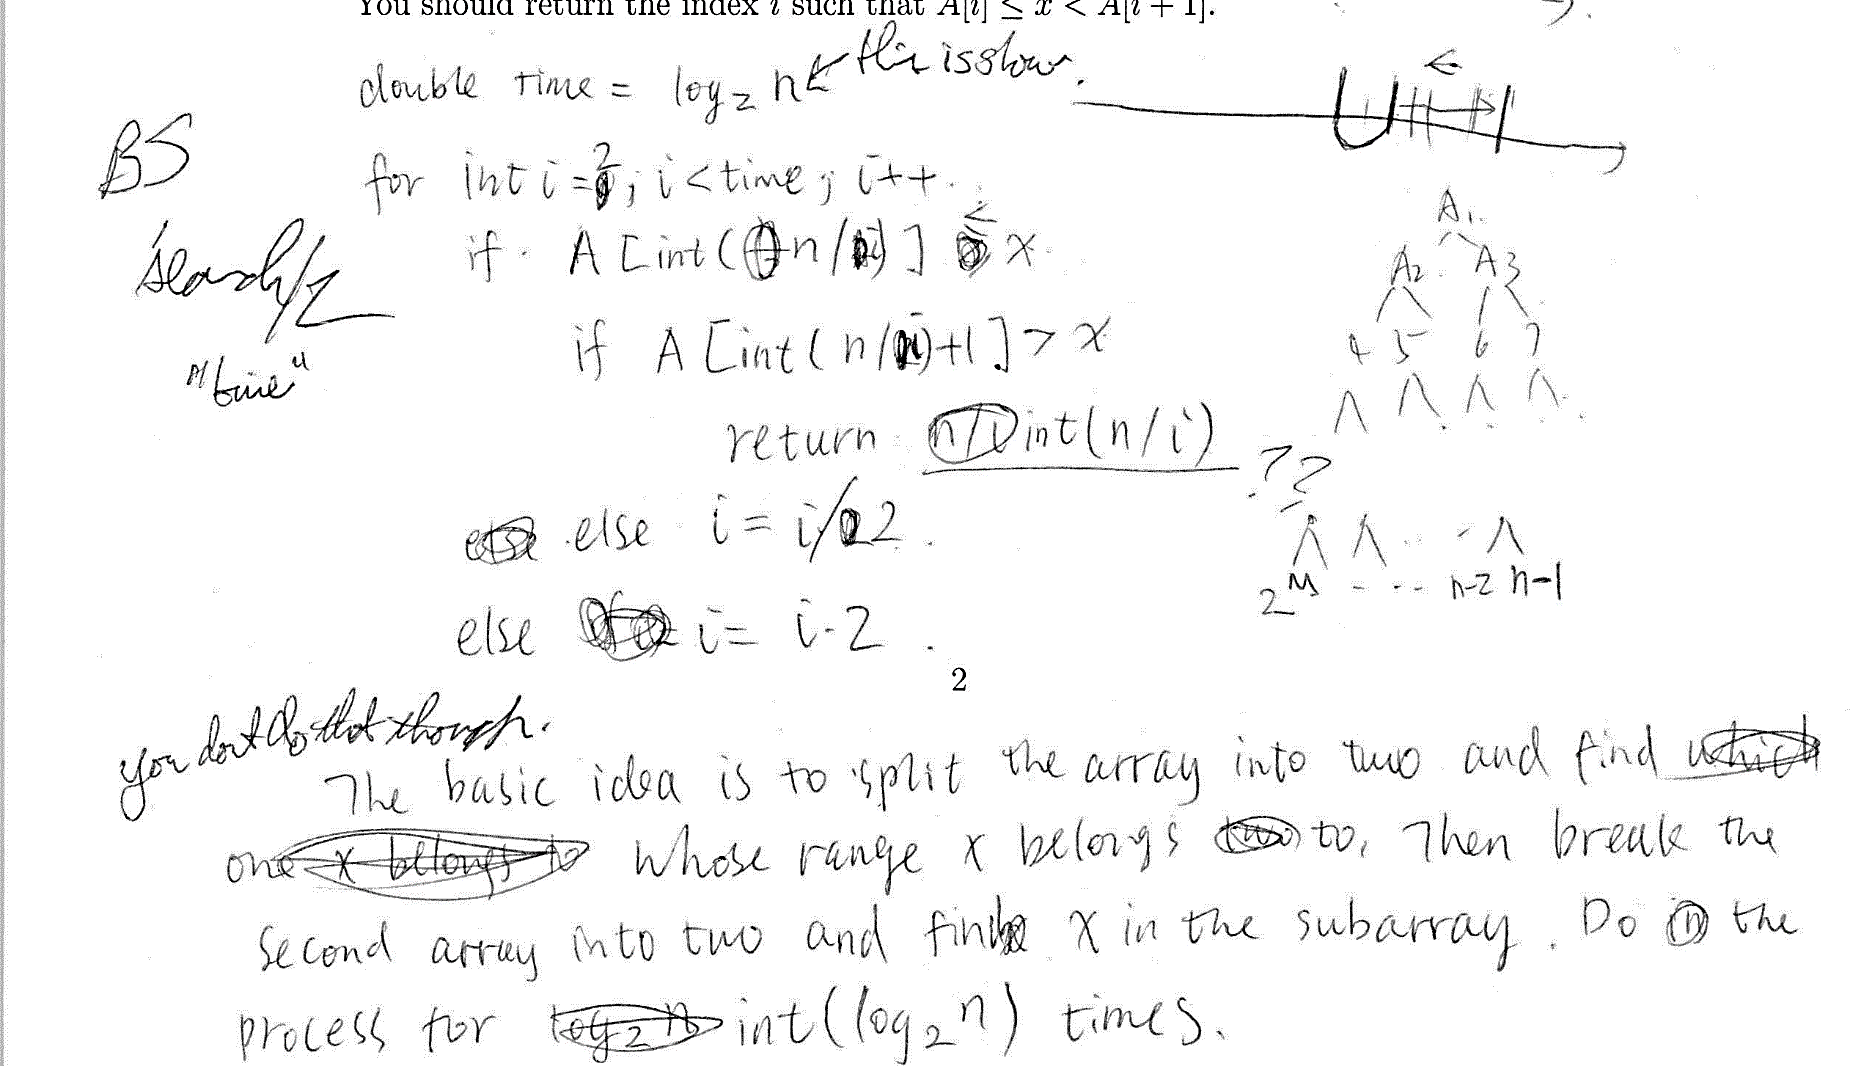 You should return the index i such that A[i] ≤ x < A[i + 1].
double time = log₂ n ← this is slow.
BS
for int i = 2; i < time; i++.
search/2
"time"
if A [int(n/i)] ≤ x.
if A [int(n/i)+1] > x
return int(n/i) ??
else i = i/2.
else i = i-2.
A1.
A2 A3
4 5 6 7
2^M - - - n-2 n-1
2
you dont do that though.
The basic idea is to split the array into two and find
one whose range x belongs to, Then break the
second array into two and find x in the subarray. Do the
process for int(log₂ n) times.